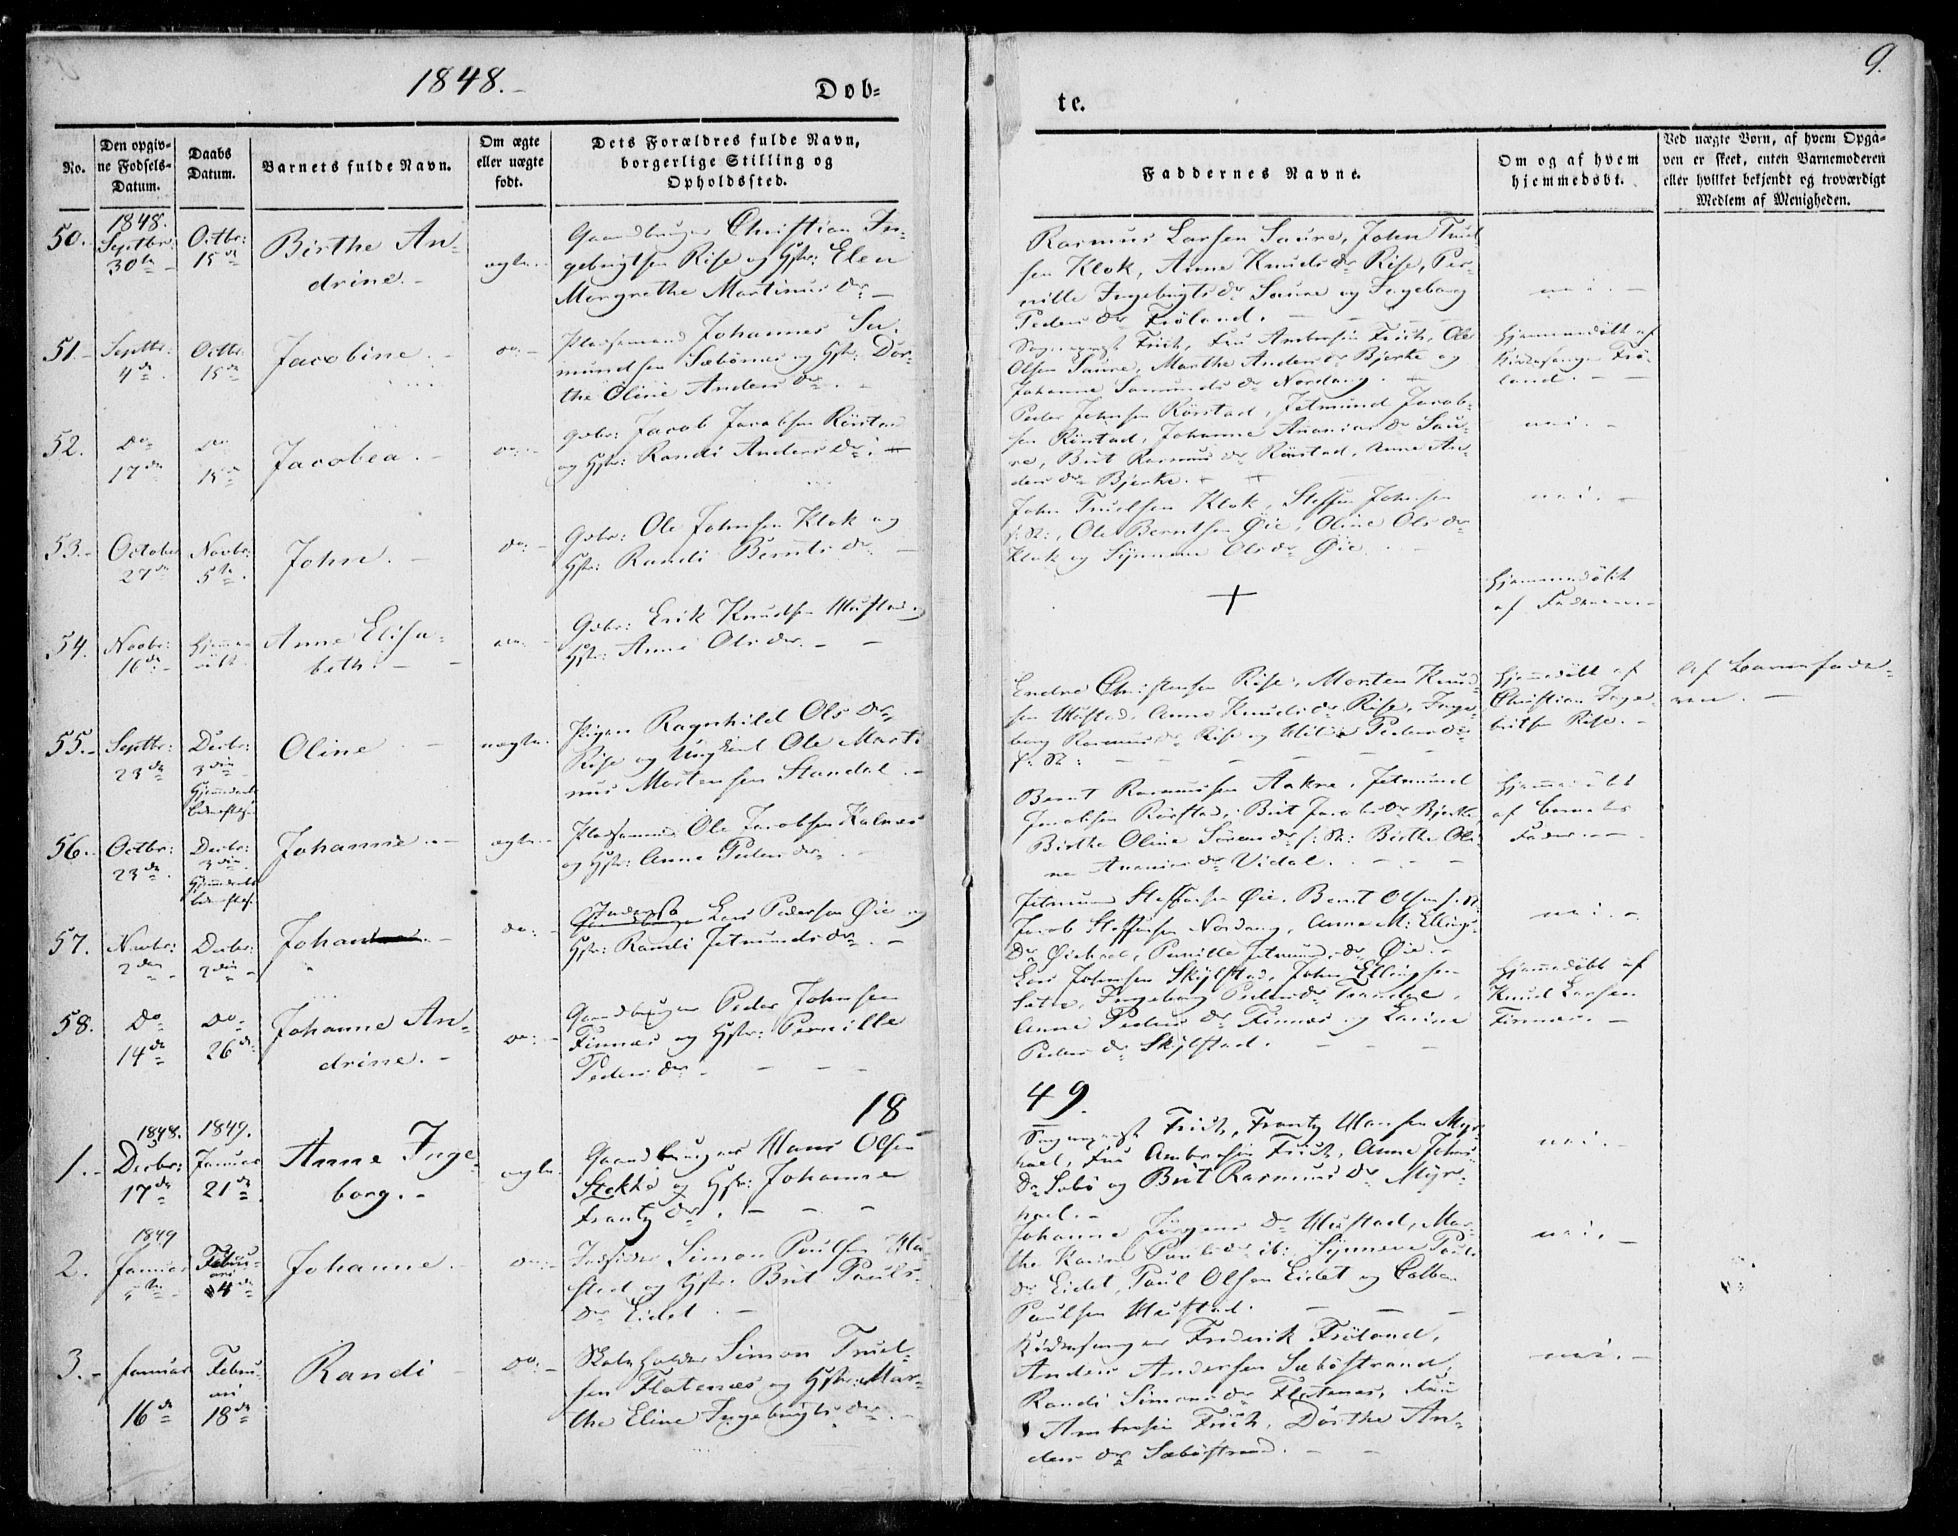 1848.-
Døb-
te.
9.
No.
Den opgiv-
ne Fødsels-
Datum.
Daabs
Datum.
Barnets fulde Navn.
Om ægte
eller uægte
født.
Dets Forældres fulde Navn,
borgerlige Stilling og
Opholdssted.
Faddernes Navne.
Om og af hvem
hjemmedøbt.
Ved uægte Børn, af hvem Opga-
ven er skeet, enten Barnemoderen
eller hvilket bekjendt og troværdigt
Medlem af Menigheden.
50.
1848.
Septbr:
30te
Octbr:
15de
Birthe An-
drine.-
ægte.
Gaardbruger Christian In-
gebrigtsen Rise og Hstr: Elen
Margrethe Martinusdr-
Rasmus Larsen Saure, John Truel
sen Klok, Anne Knudsdr Rise, Per-
nille Ingebrigtsdr Saure og Ingeborg
Pedersdr Frøland.
nei.-
51.-
Septbr:
4de
Octbr:
15de
Jacobine.-
do:-
Pladsemand Johannes Sa-
mundsen Sæbønes og Hstr: Dor-
the Oline Andersdr.
Sogneprest Frich, Fru Ambrosia Frich, Ole
Olsen Saure, Marthe Andersdr Bjerke og
Johanne Samundsdr Nordang.
Hjemmedøbt af
Kirkesanger Frø-
land.-
52.
Do
17de
Do
15de
Jacobea.-
do:-
Gbr: Jacob Jacobsen Rørstad
og Hstr: Randi Andersdr:
Peder Johnsen Rørstad, Jetmund Jacob-
sen Rørstad, Johanne Ananiasdr Sau-
re, Brit Rasmusdr Rørstad, Anne An-
dersdr Bjerke.
nei.-
53.-
October
27de
Novbr:
5te
John.-
do:-
Gbr: Ole Johnsen Klok og
Hstr: Randi Berntsdr-
John Truelsen Klok, Steffen Johnsen
s: St:, Ole Berntsen Øie, Oline Olsdr
Klok og Synneve Olsdr Øie.
nei.-
54.
Novbr:
16de
Hjemme-
døbt.
Anne Elisa-
beth.-
do:-
Gbr: Erik Knudsen Mustad og
Hstr: Anne Olsdr.-
+
Hjemmedøbt
af Faderen.-
55.-
Septbr:
23de
Decbr:
3die
Hjemmedaab
bekræftes.
Oline
uægte.
Pigen Ragnhild Olsdr
Rise og Ungkarl Ole Marti-
nus Mortensen Standal.
Endre Christensen Rise, Morten Knud-
sen Mustad, Anne Knudsdr Rise, Inge-
borg Rasmusdr Rise og Pedersdr
s: St:
Hjemmedøbt af
Christian Inge-
britsen Rise.-
Af Barnefade-
ren.-
56.
Octbr:
23de
Decbr:
3die
Hjemmedaab
bekræftes.
Johanne.-
ægte.
Pladsemand Ole Jacobsen Kalnæs
og Hstr: Anne Pedersdr
Bernt Rasmussen Aakre, Jetmund
Jacobsen Rørstad, Brit Jacobsdr Bjerke
Birthe Oline Simensdr s: St: Birthe Oli-
ne Ananiasdr Vidal.
Hjemmedøbt
af Barnets
Fader.-
57.
Novbr:
2den
Decbr:
3die
Johan
do:-
Inderst
Gaardbruger Lars Pedersen Øie og
Hstr: Randi Jetmundsdr.-
Jetmund Steffensen Øie, Bernt Olsen s: St:
Jacob Steffensen Nordang, Anne M: Ellings
Dr Øiehoel, Pernille Jetmundsdr Øie.-
nei.-
58.
Do
14de
Do
26de
Johanne An-
drine.-
do:-
Gaardbruger Peder Johnsen
Finnes og Hstr: Pernille
Pedersdr-
Lars Johnsen Skylstad, John Ellingsen
Sætre, Ingeborg Pedersdr Trandal,
Anne Pedersdr Finnes og Karine
Pedersdr Skylstad.
Hjemmedøbt af
Knud Larsen
Finnes.-
18
49.
1.-
1848.
Decbr:
17de
1849.
Januar
21de
Anne Inge-
borg.-
ægte.
Gaardbruger Hans Olsen
Stokke og Hstr: Johanne
Frantzdr.
Sogneprest Frich, Frantz Hansen Myr-
hoel, Fru Ambrosia Frich, Anne Johns
Dr Sæbø og Brit Rasmusdr Myr-
hoel.-
nei.-
2.
1849
Januar
Februari
4de
Johanne.
do:-
Indsidder Simon Paulsen Mu-
stad og Hstr: Brit Pauls-
Dr Eidet.-
Johanne Jørgensdr Mustad, Mar-
the Karine Paulsdr ib: Synneve Pauls
Dr Eidet, Paul Olsen Eidet og
Paulsen Mustad.
nei.-
3.-
Januar
16de
Februari
18de
Randi
do:-
Skoleholder Simon Truel-
sen Flatenæs og Hstr: Mar-
the Eline Ingebrigtsdr.
Kirkesanger Frederik Frøland,
Anders Andersen Sæbøstrand,
Randi Simonsdr Flatenæs, Fru
Ambrosia Frich, Dorthe An-
dersdr Sæbøstrand.
nei.-